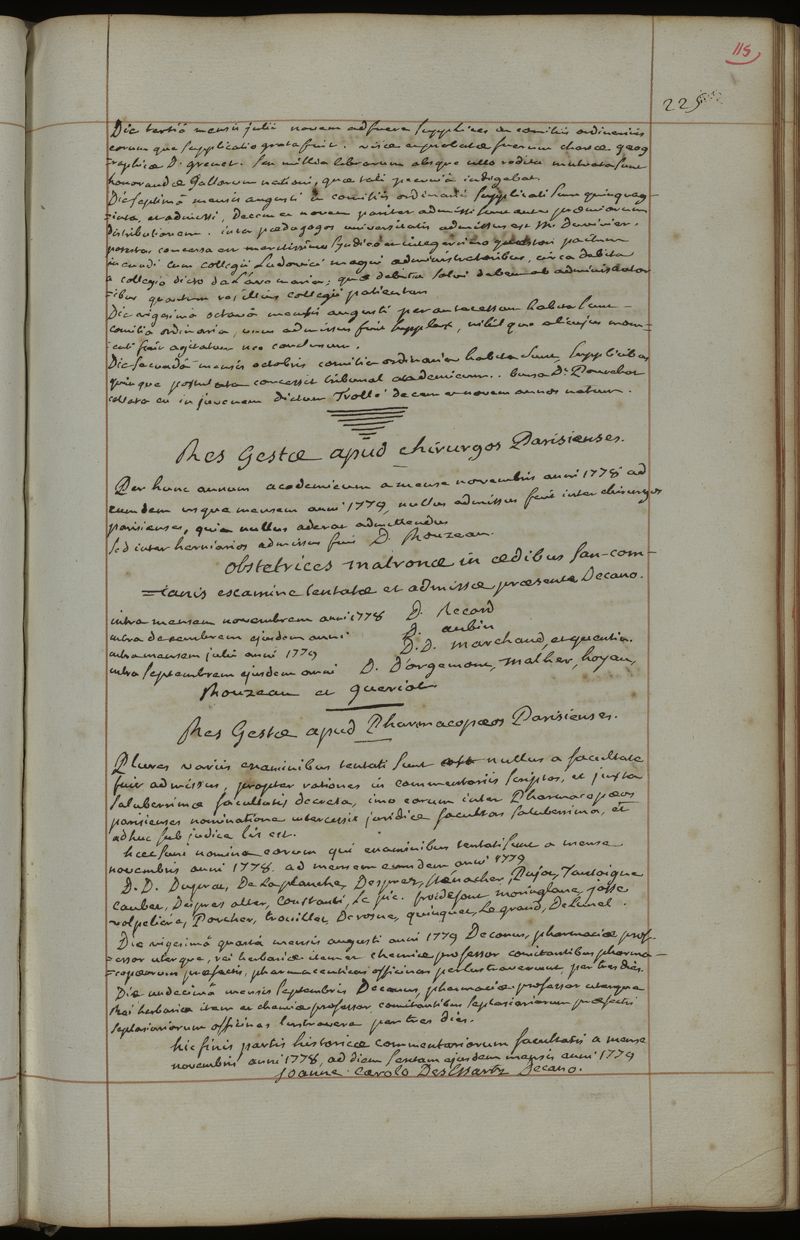 115
225
Die tertiâ mensis julii novem adfuere supplices in comitiis ordinariis
eorum que supplicatio grata fuit. visae approbatae fuerunt chartae geog
=raphicae D. grenet. sex millia librarum absque ullo reditu mutuata sunt
honorandae Gallorum nationi, quae tali pecuniâ indigebat.
Die septimâ mensis augusti in comitiis ordinariis supplicati sunt quinquag
=inta, et admissi, decem et novem pariter admissi sunt ante praemiorum
distributionem. inter paedagogos universitatis admissus est M. Duvivier.
potestas concessa est meritissimo Syndico et integerrimo quaestori pactum
ineundi cum collegii Ludovici magni administratoribus, circa debita
a collegio dicto de Lave maria; quae debita solvi debent ab administrator
=ibus quantum res illius collegii patientur
Die vigesimâ octavâ mensis augusti habita sunt
comitia ordinaria, unus admissus fuit supplex, nihil que alicujus mom-
=enti fuit agitatum nec conclusum.
Die secundâ mensis octobris comitia ordinaria habita sunt, supplicibus
quinque postulata concessit tribunal academicum. bursa D. Pourchot
collata est in juvenem dictum Trollé decem et novem annos natum.
Res Gestae apud chirurgos Parisienses.
Per hunc annum academicum a mense novembris anni 1778 ad
eumdem usque mensem anni 1779, nullus admissus fuit inter chirurgos
parisienses, quia nullus aderat admittendus
sed inter herniarios admissus fuit D. Rouzeau.
obstetrices matronae in aedibus san-com-
=ianis examine tentatae et admissae praesente Decano.
intra mensem novembrem anni 1778 D. Record
intra decembrem ejusdem anni D. aubin
intra mensem julii anni 1779 D.D. marchand, et quentin.
intra septembrem ejusdem anni D. D'orgemont, malher, hoyau,
Rouzeau et queriot
Res Gestae apud Pharmacopaeos Parisienses.
Plures variis examinibus tentati sunt nullus a facultate
fuit admissus, propter rationes in commentariis scriptas, et juxta
saluberrimae facultatis decreta, imo eorum inter Pharmacopaeos
parisienses nominatione intercessit juridice facultas saluberrima, et
adhuc sub judice lis est.
haec sunt nomina eorum qui examinibus tentati sunt a mense
novembris anni 1778 ad mensem eumdem anni 1779
D.D. Duprat, De Laplanche, Desprez, Pujos,
Caubet, Desprez alter, Constanti, Le pic. froidefont moringlane, josse
volpeliere, Porcher, trouillet, Derosne, quinquet, Le grand, Delunel.
Die vigesimâ quartâ mensis augusti anni 1779 Decanus, pharmaciae prof-
=essor uterque, rei herbariae item et chemiae professor comitantibus pharma-
=copaeorum praefectis, pharmaceuticas officinas perlustraverunt, per tres dies.
Die undecimâ mensis septembris Decanus, pharmaciae professor uterque
Rei herbariae item et chemiae professor, comitantibus seplasiariorum praefectis
seplasiariorum officinas lustravere per tres dies.
hic finis partis historicae commentariorum facultatis a mense
novembris anni 1778, ad diem sextam ejusdem mensis anni 1779
Joanne Carolo DesEssartz Decano.